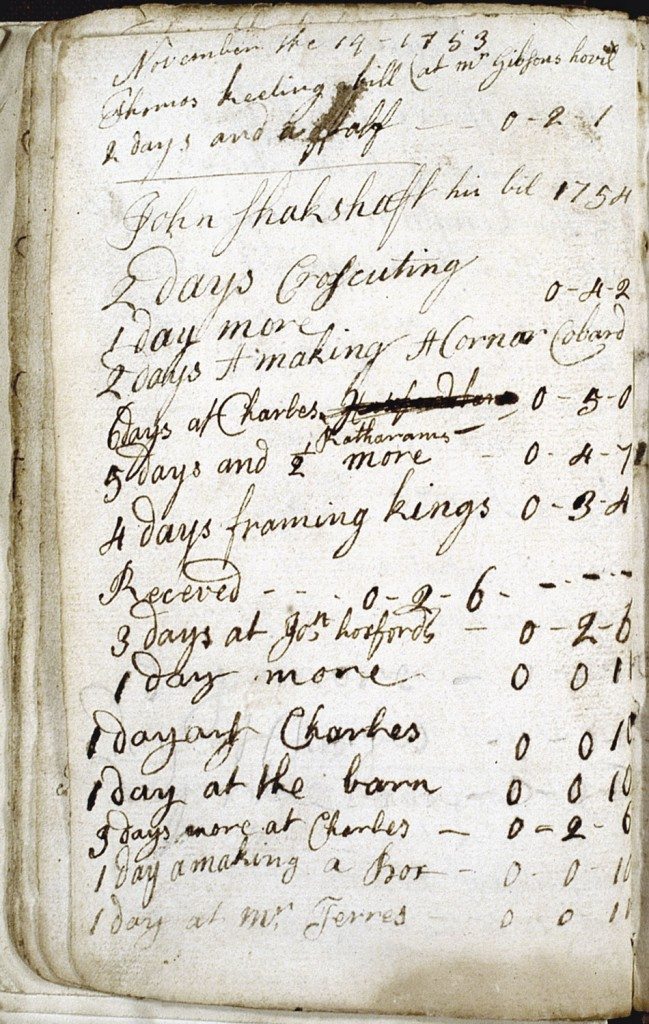 November the 19 - 1753
Thomas Keeling bill (at mr Gibsons hovil
2 days and a half — 0 - 2 - 1
John Shakshaft his bil 1754
2 days Croscuting
1 day more 0 - 4 - 2
2 days A making A Cornar Cobard
6 days at Charles 0 - 5 - 0
Katharams
5 days and ½ more - 0 - 4 - 7
4 days framing kings 0 - 3 - 4
Receved - - - 0 - 2 - 6 - - - -
3 days at Josh hosfords - 0 - 2 - 6
1 day more 0 0 1
1 day att Charles - 0 - 0 10
1 day at the barn 0 0 10
3 days more at Charles — 0 - 2 - 6
1 day amaking a Box - 0 - 0 - 10
1 day at mr Ferres - 0 0 - 1